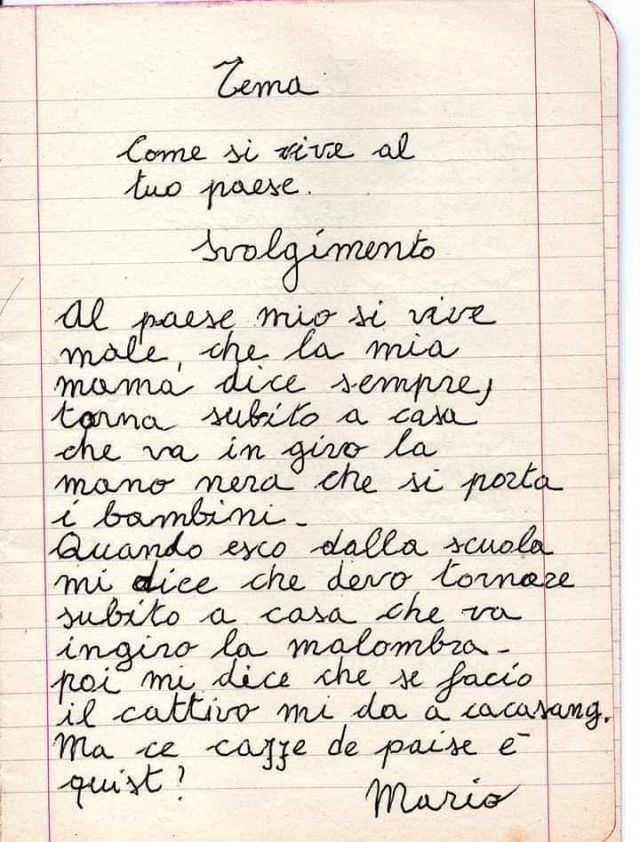 Tema
Come si vive al
tuo paese.
Svolgimento
Al paese mio si vive
male, che la mia
mamá dice sempre,
torna subito a casa
che va in giro la
mano nera che si porta
i bambini -
Quando esco dalla scuola
mi dice che devo tornare
subito a casa che va
ingiro la malombra -
poi mi dice che se facio
il cattivo mi da a cacasang.
Ma ce cazze de paise é
quist?
Mario